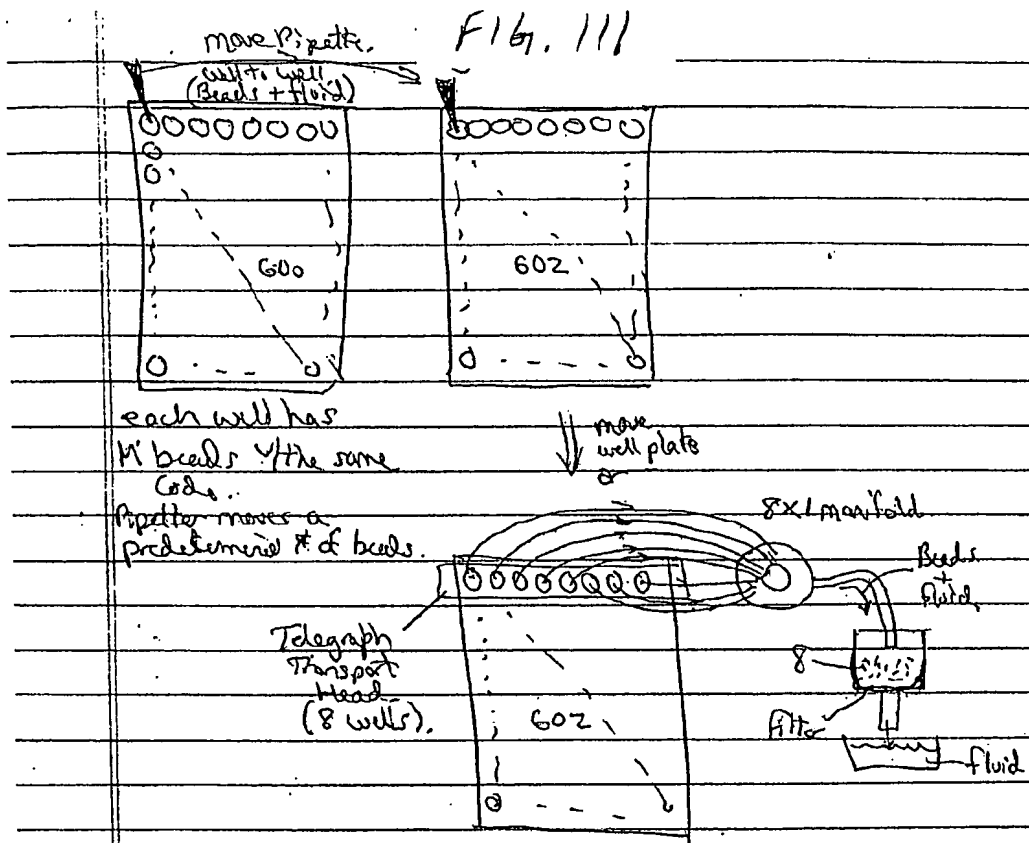 FIG. 111
move Pipette.
well to well
(Beads + fluid)
600
602
each well has
M beads w/the same
Code.
Pipetter moves a
predetermined # of beads.
move
well plate
or
8x1 manifold
Beads
+
fluid
Telegraph
Transport
Head
(8 wells).
602
8
filter
fluid